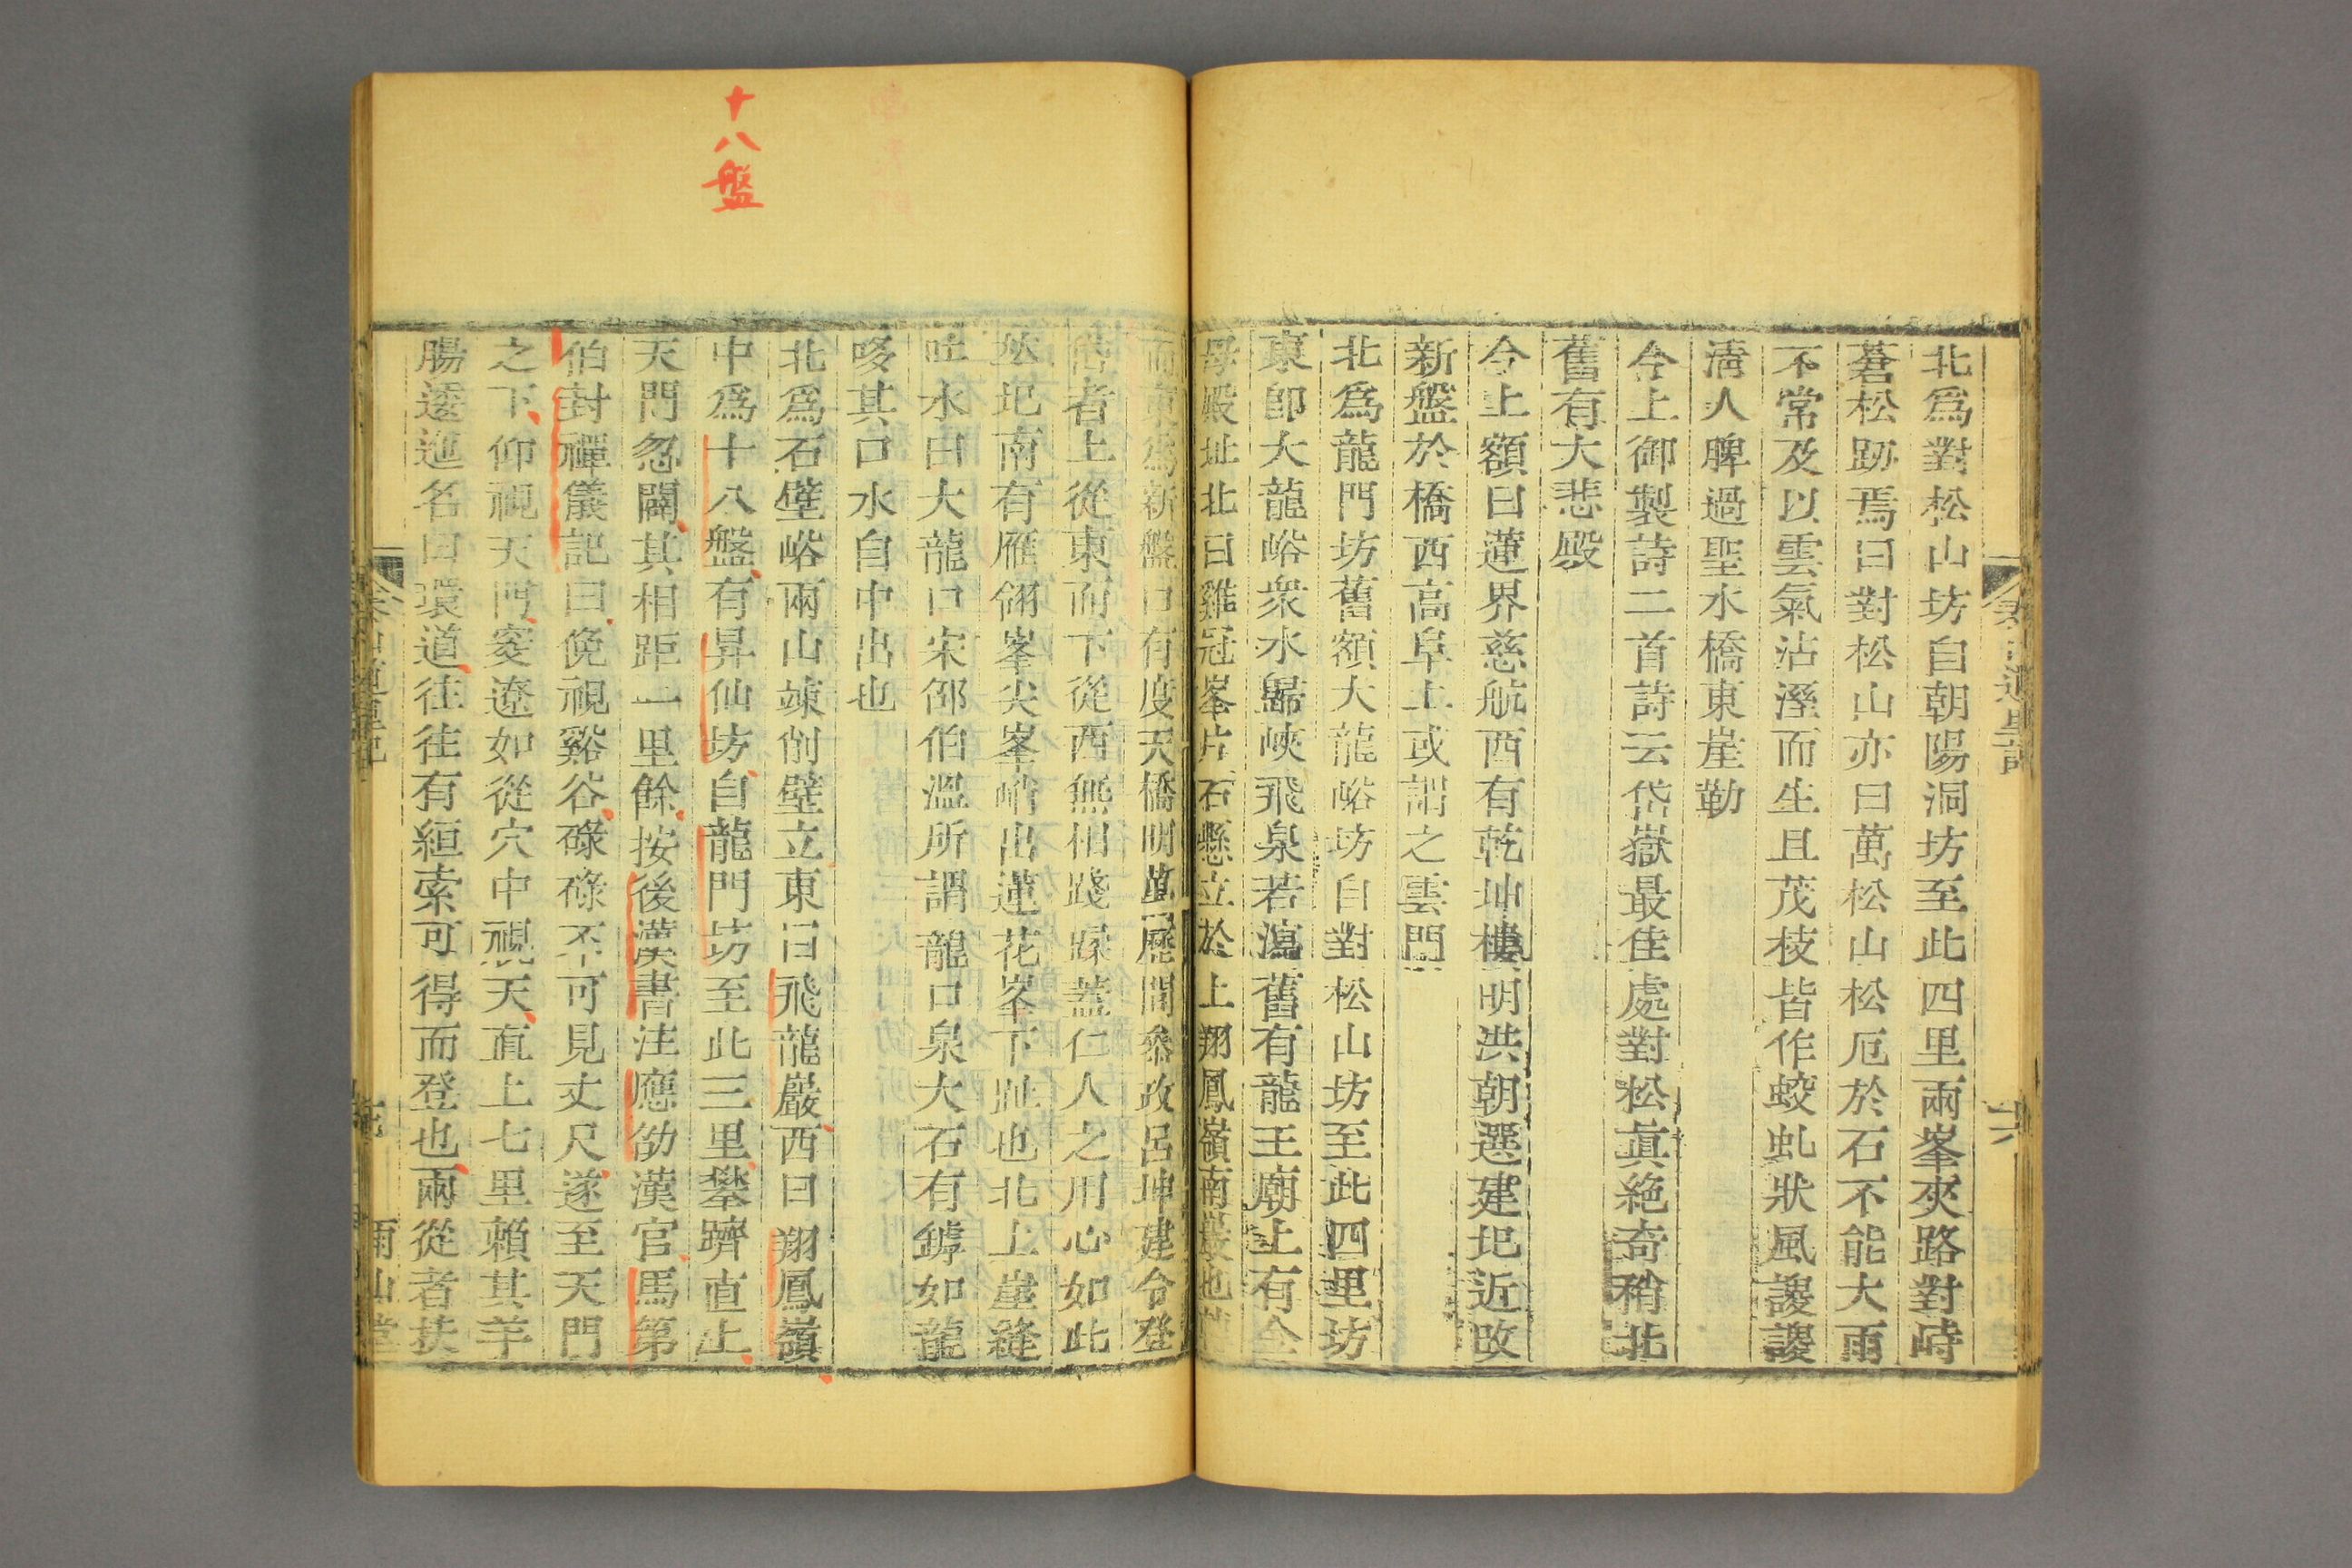 北爲對松山坊自朝陽洞坊至此四里兩峯夾路對峙
蒼松跡焉曰對松山亦曰萬松山松厄於石不能大雨
不常及以雲氣沾溼而生且茂枝皆作蛟虬狀風謖謖
淸人脾過聖水橋東崖勒
今上御製詩二首詩云岱嶽最佳處對松眞絶奇稍北
舊有大悲殿
今上額曰蓮界慈航西有乾坤樓明洪朝選建圯近改
新盤於橋西高阜上或謂之雲門
北爲龍門坊舊額大龍峪坊自對松山坊至此四里坊
東卽大龍峪衆水歸峽飛泉若瀉舊有龍王廟上有
母殿址北曰雞冠峯片石懸立於上翔鳳嶺南巖也
而東爲新盤口有度天橋明萬歷間參政呂坤建令登
岱者上從東而下從西無相踐躁蓋仁人之用心如此
圯南有雁翎峯尖峯峭出蓮花峯下趾也北上崖縫
吐水曰大龍口宋邵伯溫所謂龍口泉大石有罅如龍
哆其口水自中出也
十八盤
北爲石壁峪兩山竦削壁立東曰飛龍巖西曰翔鳳嶺
中爲十八盤有昇仙坊自龍門坊至此三里攀躋直上
天門忽闢其相距一里餘按後漢書注應劭漢官馬第
伯封禪儀記曰俛視谿谷碌碌不可見丈尺遂至天門
之下仰視天門窔遼如從穴中視天直上七里賴其羊
腸逶迤名曰環道往往有絙索可得而登也兩從者扶